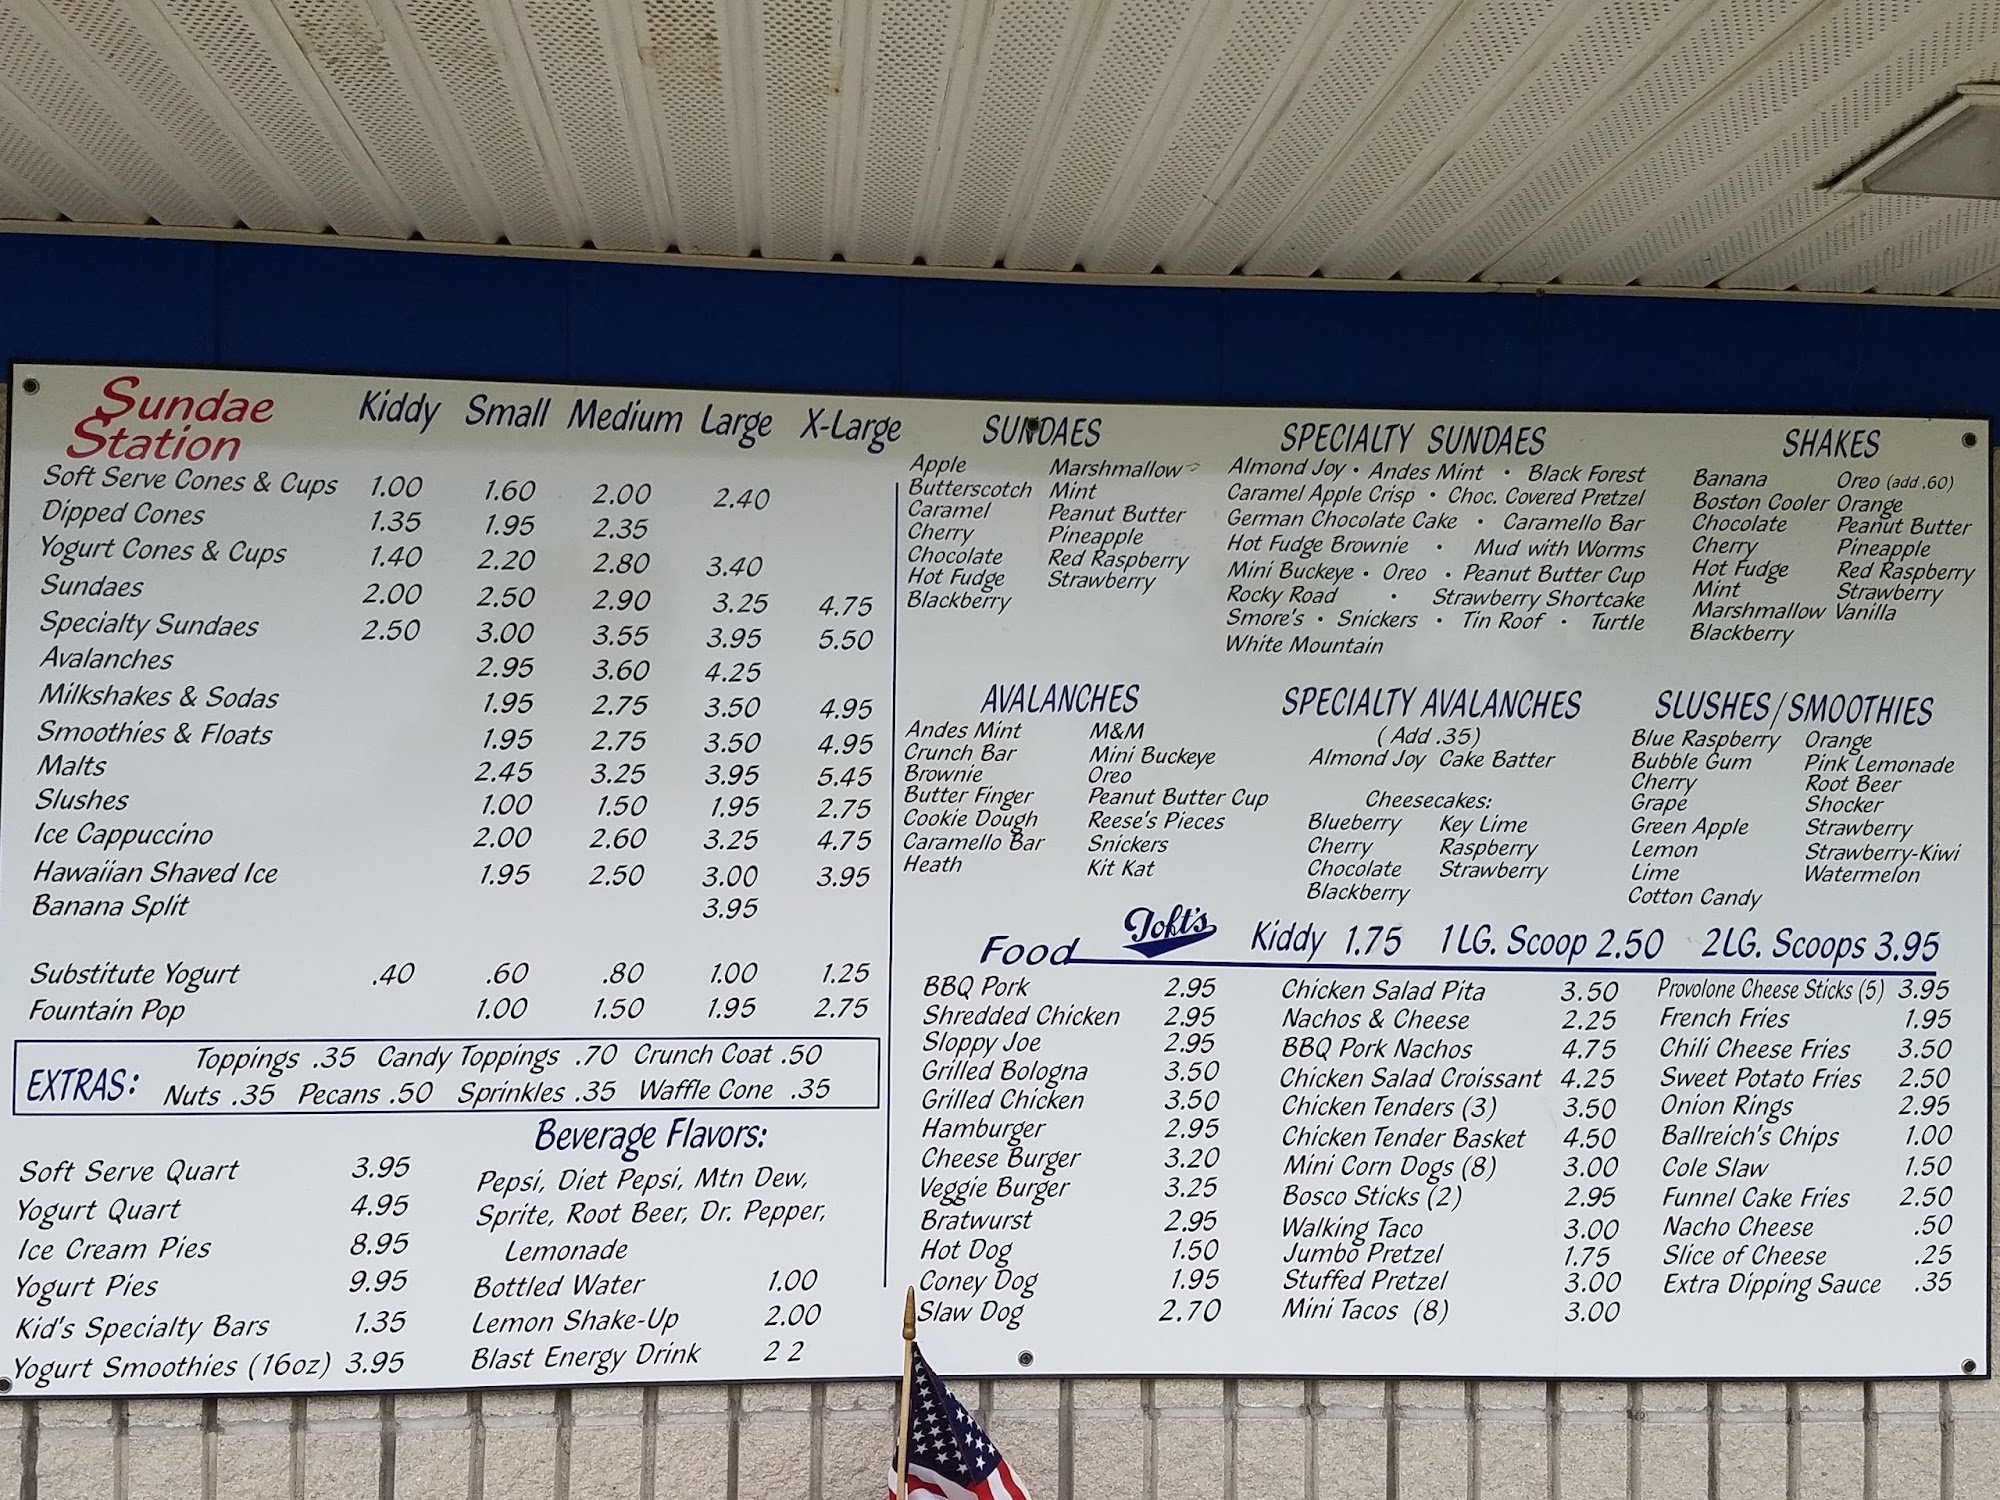 Sundae Station
Kiddy Small Medium Large X-Large
Soft Serve Cones & Cups 1.00 1.60 2.00 2.40
Dipped Cones 1.35 1.95 2.35
Yogurt Cones & Cups 1.40 2.20 2.80 3.40
Sundaes 2.00 2.50 2.90 3.25 4.75
Specialty Sundaes 2.50 3.00 3.55 3.95 5.50
Avalanches 2.95 3.60 4.25
Milkshakes & Sodas 1.95 2.75 3.50 4.95
Smoothies & Floats 1.95 2.75 3.50 4.95
Malts 2.45 3.25 3.95 5.45
Slushes 1.00 1.50 1.95 2.75
Ice Cappuccino 2.00 2.60 3.25 4.75
Hawaiian Shaved Ice 1.95 2.50 3.00 3.95
Banana Split 3.95
Substitute Yogurt .40 .60 .80 1.00 1.25
Fountain Pop 1.00 1.50 1.95 2.75
EXTRAS:
Toppings .35 Candy Toppings .70 Crunch Coat .50
Nuts .35 Pecans .50 Sprinkles .35 Waffle Cone .35
Soft Serve Quart 3.95
Yogurt Quart 4.95
Ice Cream Pies 8.95
Yogurt Pies 9.95
Kid's Specialty Bars 1.35
Yogurt Smoothies (16oz) 3.95
Beverage Flavors:
Pepsi, Diet Pepsi, Mtn Dew,
Sprite, Root Beer, Dr. Pepper,
Lemonade
Bottled Water 1.00
Lemon Shake-Up 2.00
Blast Energy Drink 2 2
SUNDAES
Apple Marshmallow
Butterscotch Mint
Caramel Peanut Butter
Cherry Pineapple
Chocolate Red Raspberry
Hot Fudge Strawberry
Blackberry
SPECIALTY SUNDAES
Almond Joy • Andes Mint • Black Forest
Caramel Apple Crisp • Choc. Covered Pretzel
German Chocolate Cake • Caramello Bar
Hot Fudge Brownie • Mud with Worms
Mini Buckeye • Oreo • Peanut Butter Cup
Rocky Road • Strawberry Shortcake
Smore's • Snickers • Tin Roof • Turtle
White Mountain
SHAKES
Banana Oreo (add .60)
Boston Cooler Orange
Chocolate Peanut Butter
Cherry Pineapple
Hot Fudge Red Raspberry
Mint Strawberry
Marshmallow Vanilla
Blackberry
AVALANCHES
Andes Mint M&M
Crunch Bar Mini Buckeye
Brownie Oreo
Butter Finger Peanut Butter Cup
Cookie Dough Reese's Pieces
Caramello Bar Snickers
Heath Kit Kat
SPECIALTY AVALANCHES
(Add .35)
Almond Joy Cake Batter
Cheesecakes:
Blueberry Key Lime
Cherry Raspberry
Chocolate Strawberry
Blackberry
SLUSHES/SMOOTHIES
Blue Raspberry Orange
Bubble Gum Pink Lemonade
Cherry Root Beer
Grape Shocker
Green Apple Strawberry
Lemon Strawberry-Kiwi
Lime Watermelon
Cotton Candy
Food Toft's Kiddy 1.75 1 LG. Scoop 2.50 2 LG. Scoops 3.95
BBQ Pork 2.95
Shredded Chicken 2.95
Sloppy Joe 2.95
Grilled Bologna 3.50
Grilled Chicken 3.50
Hamburger 2.95
Cheese Burger 3.20
Veggie Burger 3.25
Bratwurst 2.95
Hot Dog 1.50
Coney Dog 1.95
Slaw Dog 2.70
Chicken Salad Pita 3.50
Nachos & Cheese 2.25
BBQ Pork Nachos 4.75
Chicken Salad Croissant 4.25
Chicken Tenders (3) 3.50
Chicken Tender Basket 4.50
Mini Corn Dogs (8) 3.00
Bosco Sticks (2) 2.95
Walking Taco 3.00
Jumbo Pretzel 1.75
Stuffed Pretzel 3.00
Mini Tacos (8) 3.00
Provolone Cheese Sticks (5) 3.95
French Fries 1.95
Chili Cheese Fries 3.50
Sweet Potato Fries 2.50
Onion Rings 2.95
Ballreich's Chips 1.00
Cole Slaw 1.50
Funnel Cake Fries 2.50
Nacho Cheese .50
Slice of Cheese .25
Extra Dipping Sauce .35